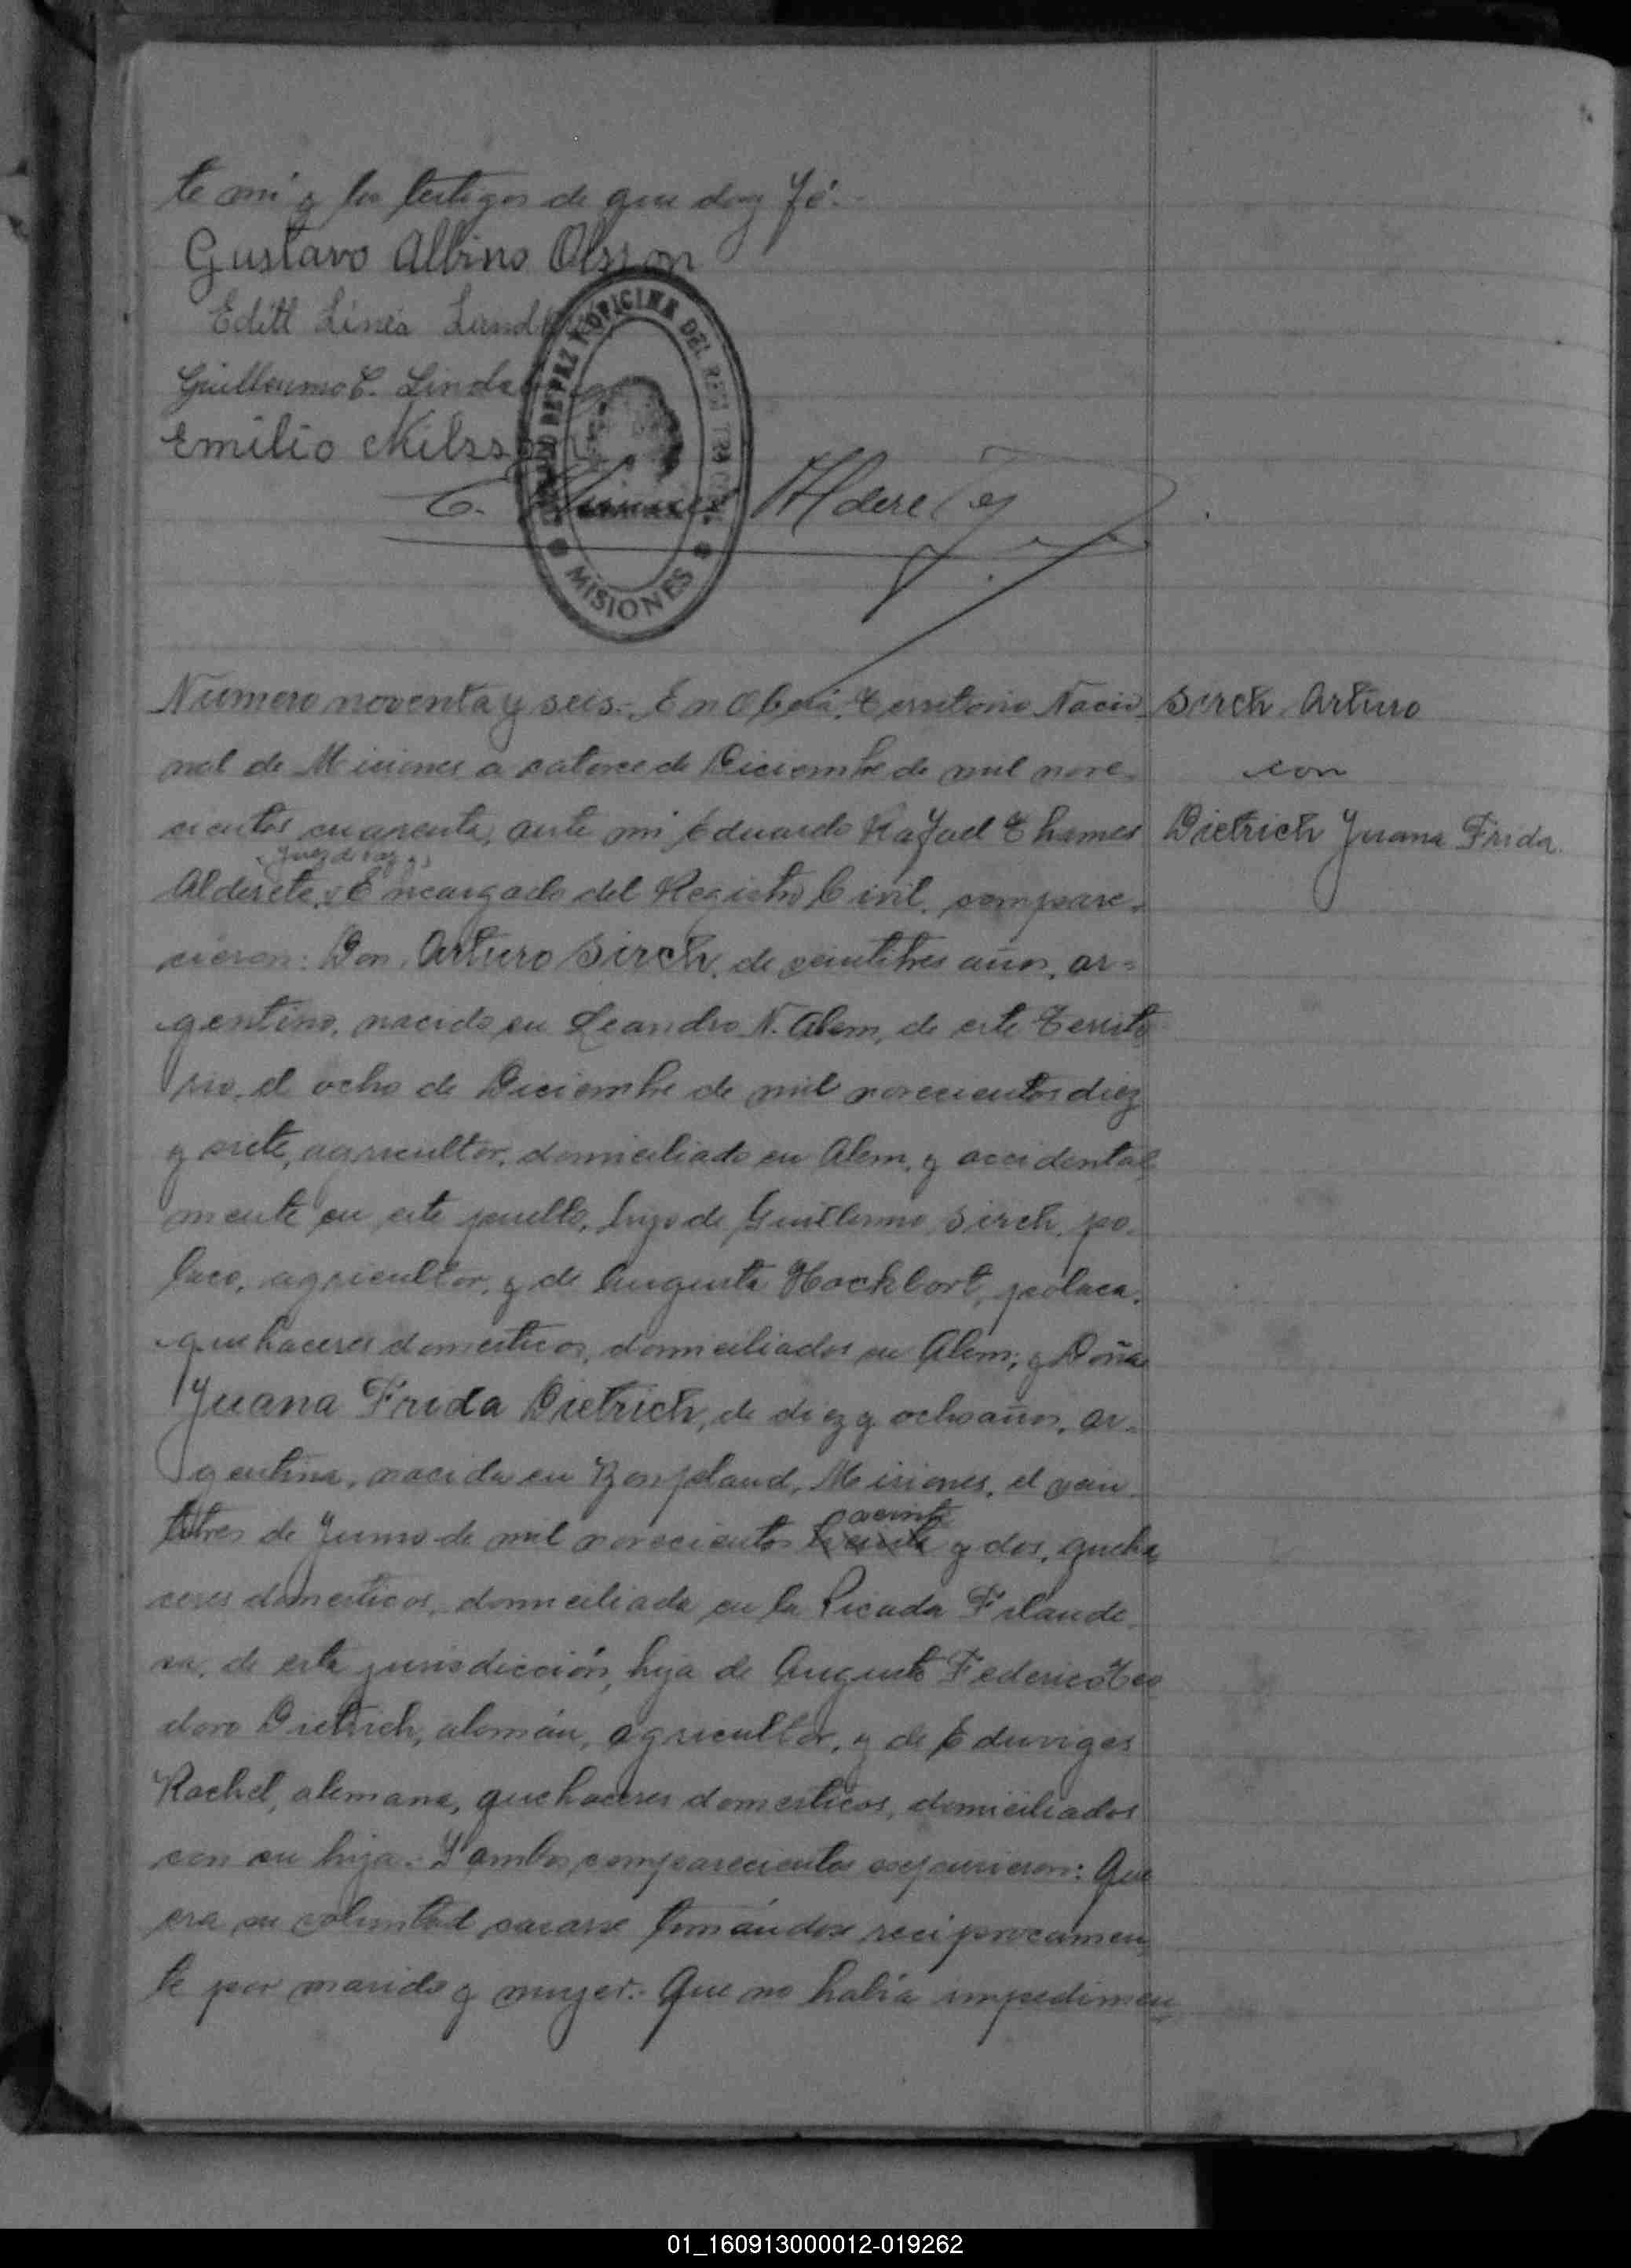 te mí y los testigos de que doy fé.-
Gustavo Albino Olsson
Edith Linea
Guillermo C.
Emilio Nilsson
JUZGADO DE PAZ Y OFICINA DEL REGISTRO CIVIL
MISIONES
E. Thames Alderete
Número noventa y seis.- En Oberá, Territorio Nacio-
nal de Misiones a catorce de Diciembre de mil nove-
cientos cuarenta, ante mi Eduardo Rafael Thames
Juez de Paz y
Alderete, Encargado del Registro Civil, compare-
cieron: Don Arturo Sirch, de veintitres años, ar=
gentino, nacido en Leandro N. Alem, de este Territo
rio, el ocho de Diciembre de mil novecientos diez
y siete, agricultor, domiciliado en Alem, y accidental
mente en este pueblo, hijo de Guillermo Sirch, po-
laco, agricultor, y de Augusta Hockbort, polaca,
quehaceres domesticos, domiciliados en Alem; y Doña
Juana Frida Dietrich, de diez y ocho años, ar-
gentina, nacida en Bonpland, Misiones, el vein-
veinte
titres de Junio de mil novecientos treinta y dos, queha
ceres domesticos, domiciliada en la Picada Filande-
sa, de esta jurisdicción, hija de Augusto Federico Teo
doro Dietrich, alemán, agricultor, y de Eduviges
Rachel, alemana, quehaceres domesticos, domiciliados
con su hija.- Y ambos comparecientes expusieron: Que
era su voluntad casarse tomándose reciprocamen
te por marido y mujer.- Que no había impedimen
Sirch Arturo
con
Dietrich Juana Frida.
01_160913000012-019262